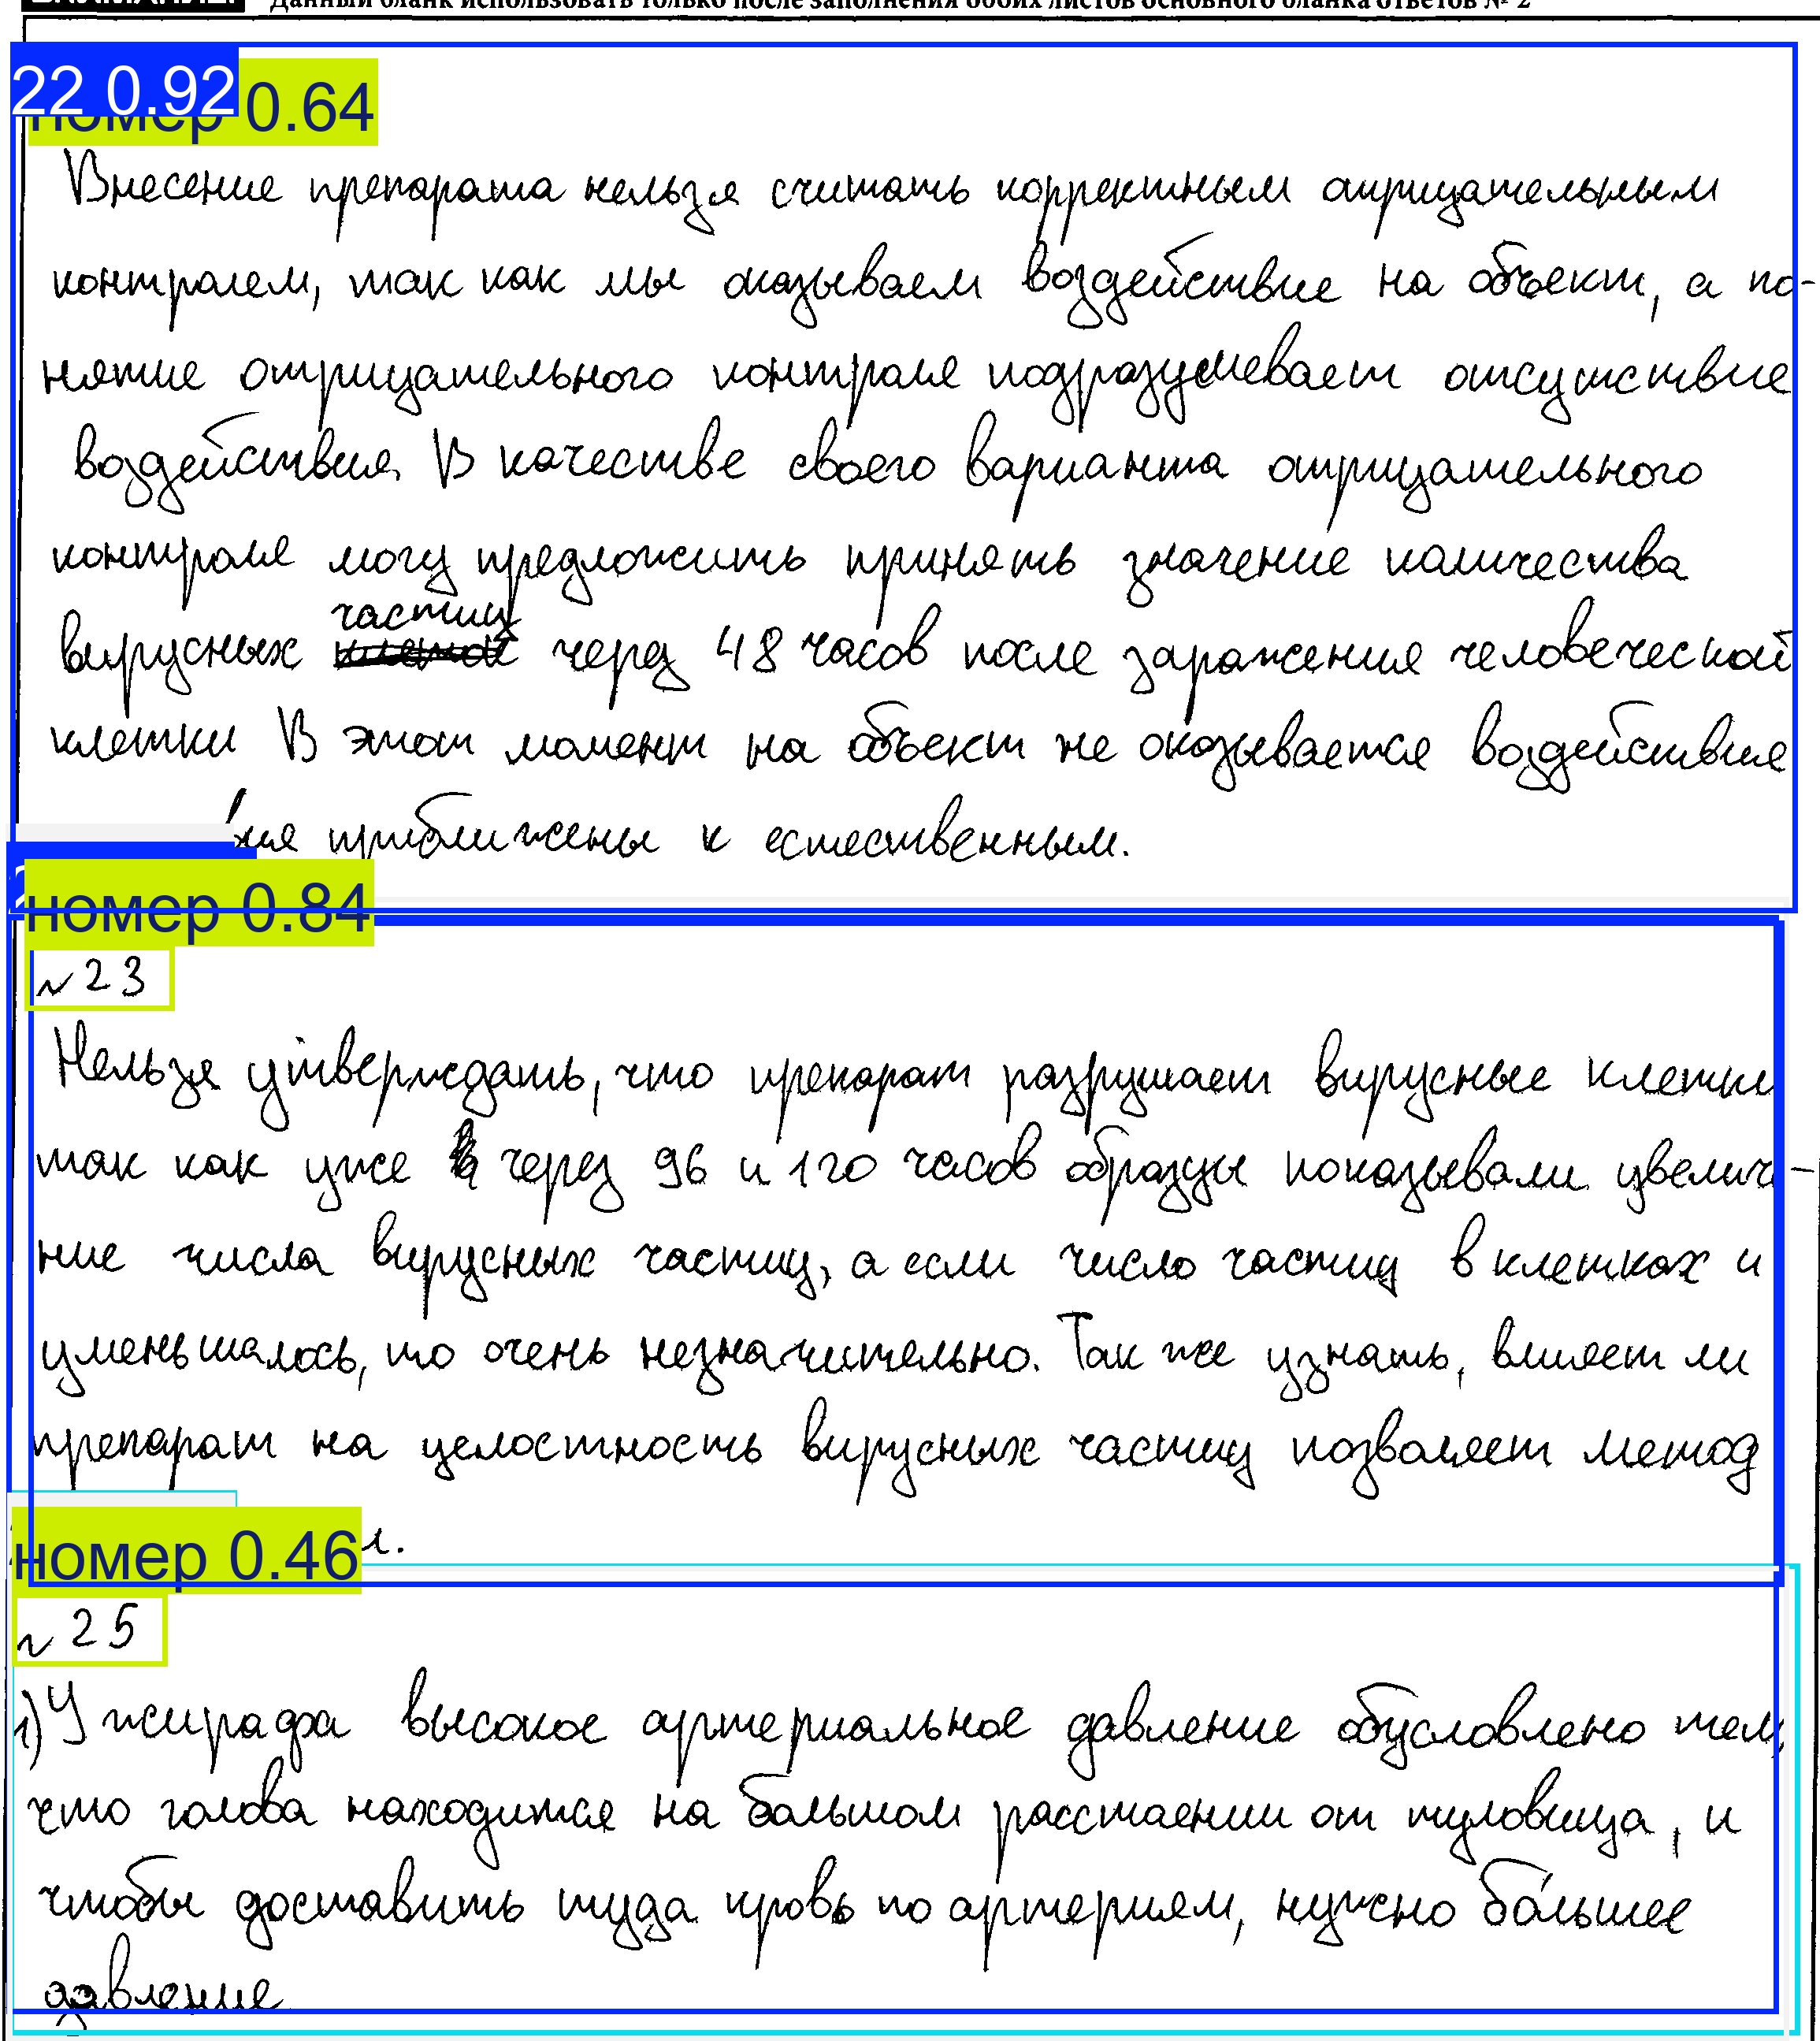 Данный бланк использовать только после заполнения обоих листов основного бланка ответов № 2
22 0.92
номер 0.64
Внесение препарата нельзя считать корректным отрицательным
контролем, так как мы оказываем воздействие на объект, а по-
нятие отрицательного контроля подразумевает отсутствие
воздействия. В качестве своего варианта отрицательного
контроля могу предложить принять значение количества
вирусных частиц через 48 часов после заражения человеческой
клетки В этот момент на объект не оказывается воздействие
приближены к естественным.
номер 0.84
№23
Нельзя утверждать, что препарат разрушает вирусные клетки
так как уже через 96 и 120 часов образцы показывали увеличе-
ние числа вирусных частиц, а если число частиц в клетках и
уменьшалось, то очень незначительно. Так же узнать, влияет ли
препарат на целостность вирусных частиц позволяет метод
номер 0.46
№25
1) У жирафа высокое артериальное давление обусловлено тем,
что голова находится на большом расстоении от туловища, и
чтобы доставить туда кровь по артериям, нужно бо́льшее
давление